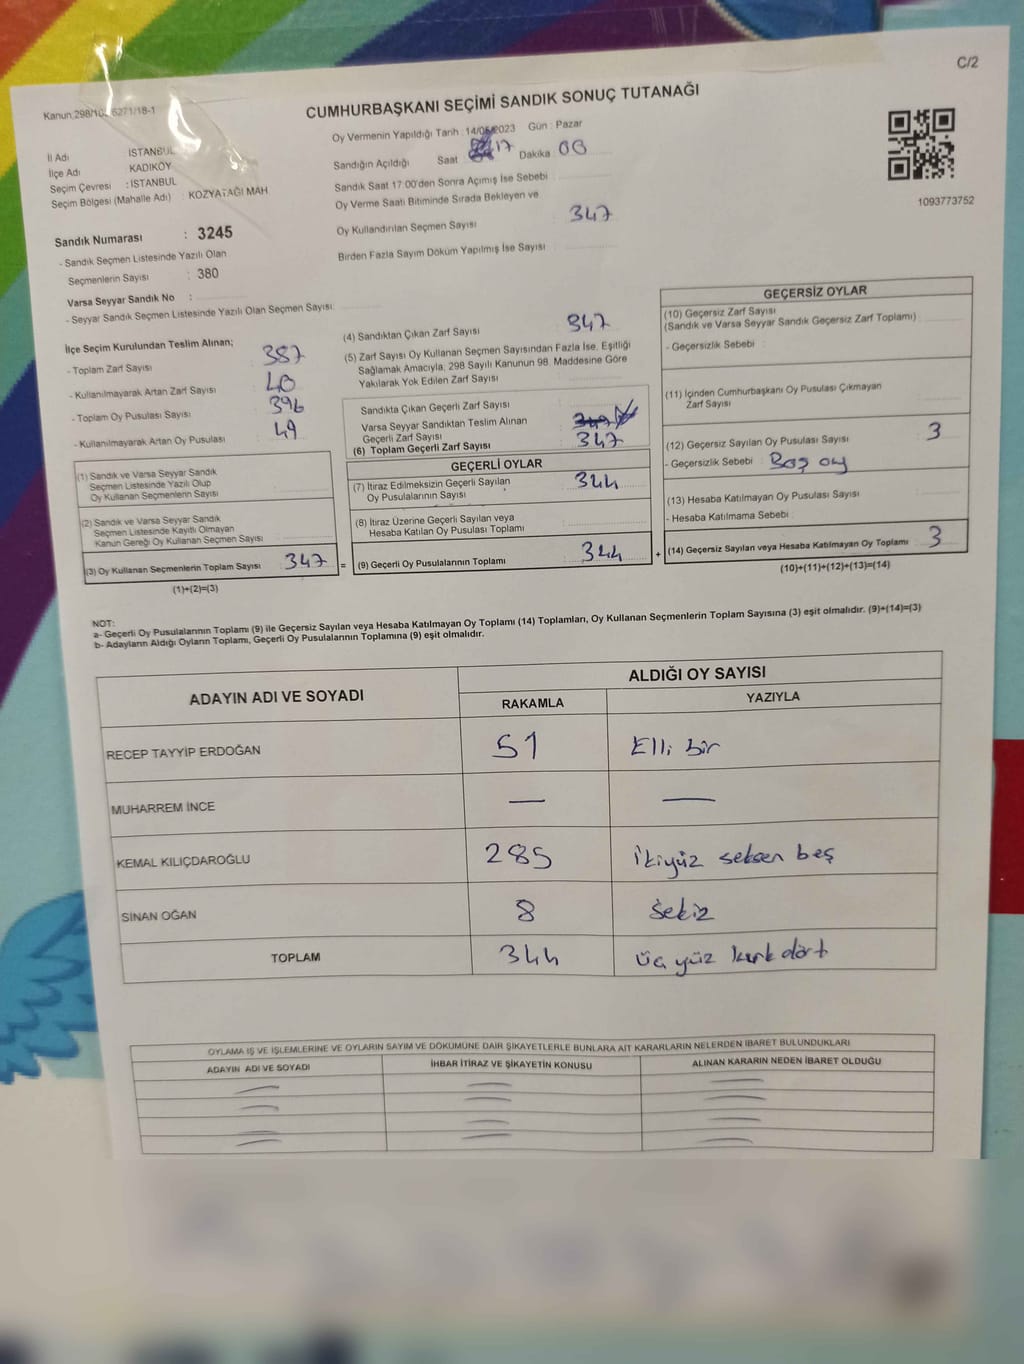 C/2
Kanun:298/10 6271/18-1
CUMHURBAŞKANI SEÇİMİ SANDIK SONUÇ TUTANAĞI
İl Adı İSTANBUL
İlçe Adı KADIKÖY
Seçim Çevresi : İSTANBUL
Seçim Bölgesi (Mahalle Adı) : KOZYATAĞI MAH
Sandık Numarası : 3245
- Sandık Seçmen Listesinde Yazılı Olan
Seçmenlerin Sayısı : 380
Varsa Seyyar Sandık No :
- Seyyar Sandık Seçmen Listesinde Yazılı Olan Seçmen Sayısı:
Oy Vermenin Yapıldığı Tarih : 14/05/2023 Gün : Pazar
Sandığın Açıldığı Saat 17 Dakika 00
Sandık Saat 17:00'den Sonra Açımış İse Sebebi
Oy Verme Saati Bitiminde Sırada Bekleyen ve
Oy Kullandırılan Seçmen Sayısı 347
Birden Fazla Sayım Döküm Yapılmış İse Sayısı
1093773752
İlçe Seçim Kurulundan Teslim Alınan;
- Toplam Zarf Sayısı : 387
- Kullanılmayarak Artan Zarf Sayısı : 40
- Toplam Oy Pusulası Sayısı : 396
- Kullanılmayarak Artan Oy Pusulası : 49
(1) Sandık ve Varsa Seyyar Sandık
Seçmen Listesinde Yazılı Olup
Oy Kullanan Seçmenlerin Sayısı
(2) Sandık ve Varsa Seyyar Sandık
Seçmen Listesinde Kayıtlı Olmayan
Kanun Gereği Oy Kullanan Seçmen Sayısı
(3) Oy Kullanan Seçmenlerin Toplam Sayısı : 347 =
(1)+(2)=(3)
(4) Sandıktan Çıkan Zarf Sayısı 347
(5) Zarf Sayısı Oy Kullanan Seçmen Sayısından Fazla İse, Eşitliği
Sağlamak Amacıyla, 298 Sayılı Kanunun 98. Maddesine Göre
Yakılarak Yok Edilen Zarf Sayısı
Sandıkta Çıkan Geçerli Zarf Sayısı
Varsa Seyyar Sandıktan Teslim Alınan
Geçerli Zarf Sayısı
(6) Toplam Geçerli Zarf Sayısı 347
GEÇERLİ OYLAR
(7) İtiraz Edilmeksizin Geçerli Sayılan
Oy Pusulalarının Sayısı 344
(8) İtiraz Üzerine Geçerli Sayılan veya
Hesaba Katılan Oy Pusulası Toplamı
(9) Geçerli Oy Pusulalarının Toplamı 344 +
GEÇERSİZ OYLAR
(10) Geçersiz Zarf Sayısı
(Sandık ve Varsa Seyyar Sandık Geçersiz Zarf Toplamı) :
- Geçersizlik Sebebi :
(11) İçinden Cumhurbaşkanı Oy Pusulası Çıkmayan
Zarf Sayısı
(12) Geçersiz Sayılan Oy Pusulası Sayısı : 3
- Geçersizlik Sebebi : Boş oy
(13) Hesaba Katılmayan Oy Pusulası Sayısı
- Hesaba Katılmama Sebebi :
(14) Geçersiz Sayılan veya Hesaba Katılmayan Oy Toplamı 3
(10)+(11)+(12)+(13)=(14)
NOT:
a- Geçerli Oy Pusulalarının Toplamı (9) ile Geçersiz Sayılan veya Hesaba Katılmayan Oy Toplamı (14) Toplamları, Oy Kullanan Seçmenlerin Toplam Sayısına (3) eşit olmalıdır. (9)+(14)=(3)
b- Adayların Aldığı Oyların Toplamı, Geçerli Oy Pusulalarının Toplamına (9) eşit olmalıdır.
ADAYIN ADI VE SOYADI ALDIĞI OY SAYISI
RAKAMLA YAZIYLA
RECEP TAYYİP ERDOĞAN 51 Elli bir
MUHARREM İNCE — —
KEMAL KILIÇDAROĞLU 285 İkiyüz seksen beş
SİNAN OĞAN 8 Sekiz
TOPLAM 344 Üç yüz kırk dört
OYLAMA İŞ VE İŞLEMLERİNE VE OYLARIN SAYIM VE DÖKÜMÜNE DAİR ŞİKAYETLERLE BUNLARA AİT KARARLARIN NELERDEN İBARET BULUNDUKLARI
ADAYIN ADI VE SOYADI İHBAR İTİRAZ VE ŞİKAYETİN KONUSU ALINAN KARARIN NEDEN İBARET OLDUĞU